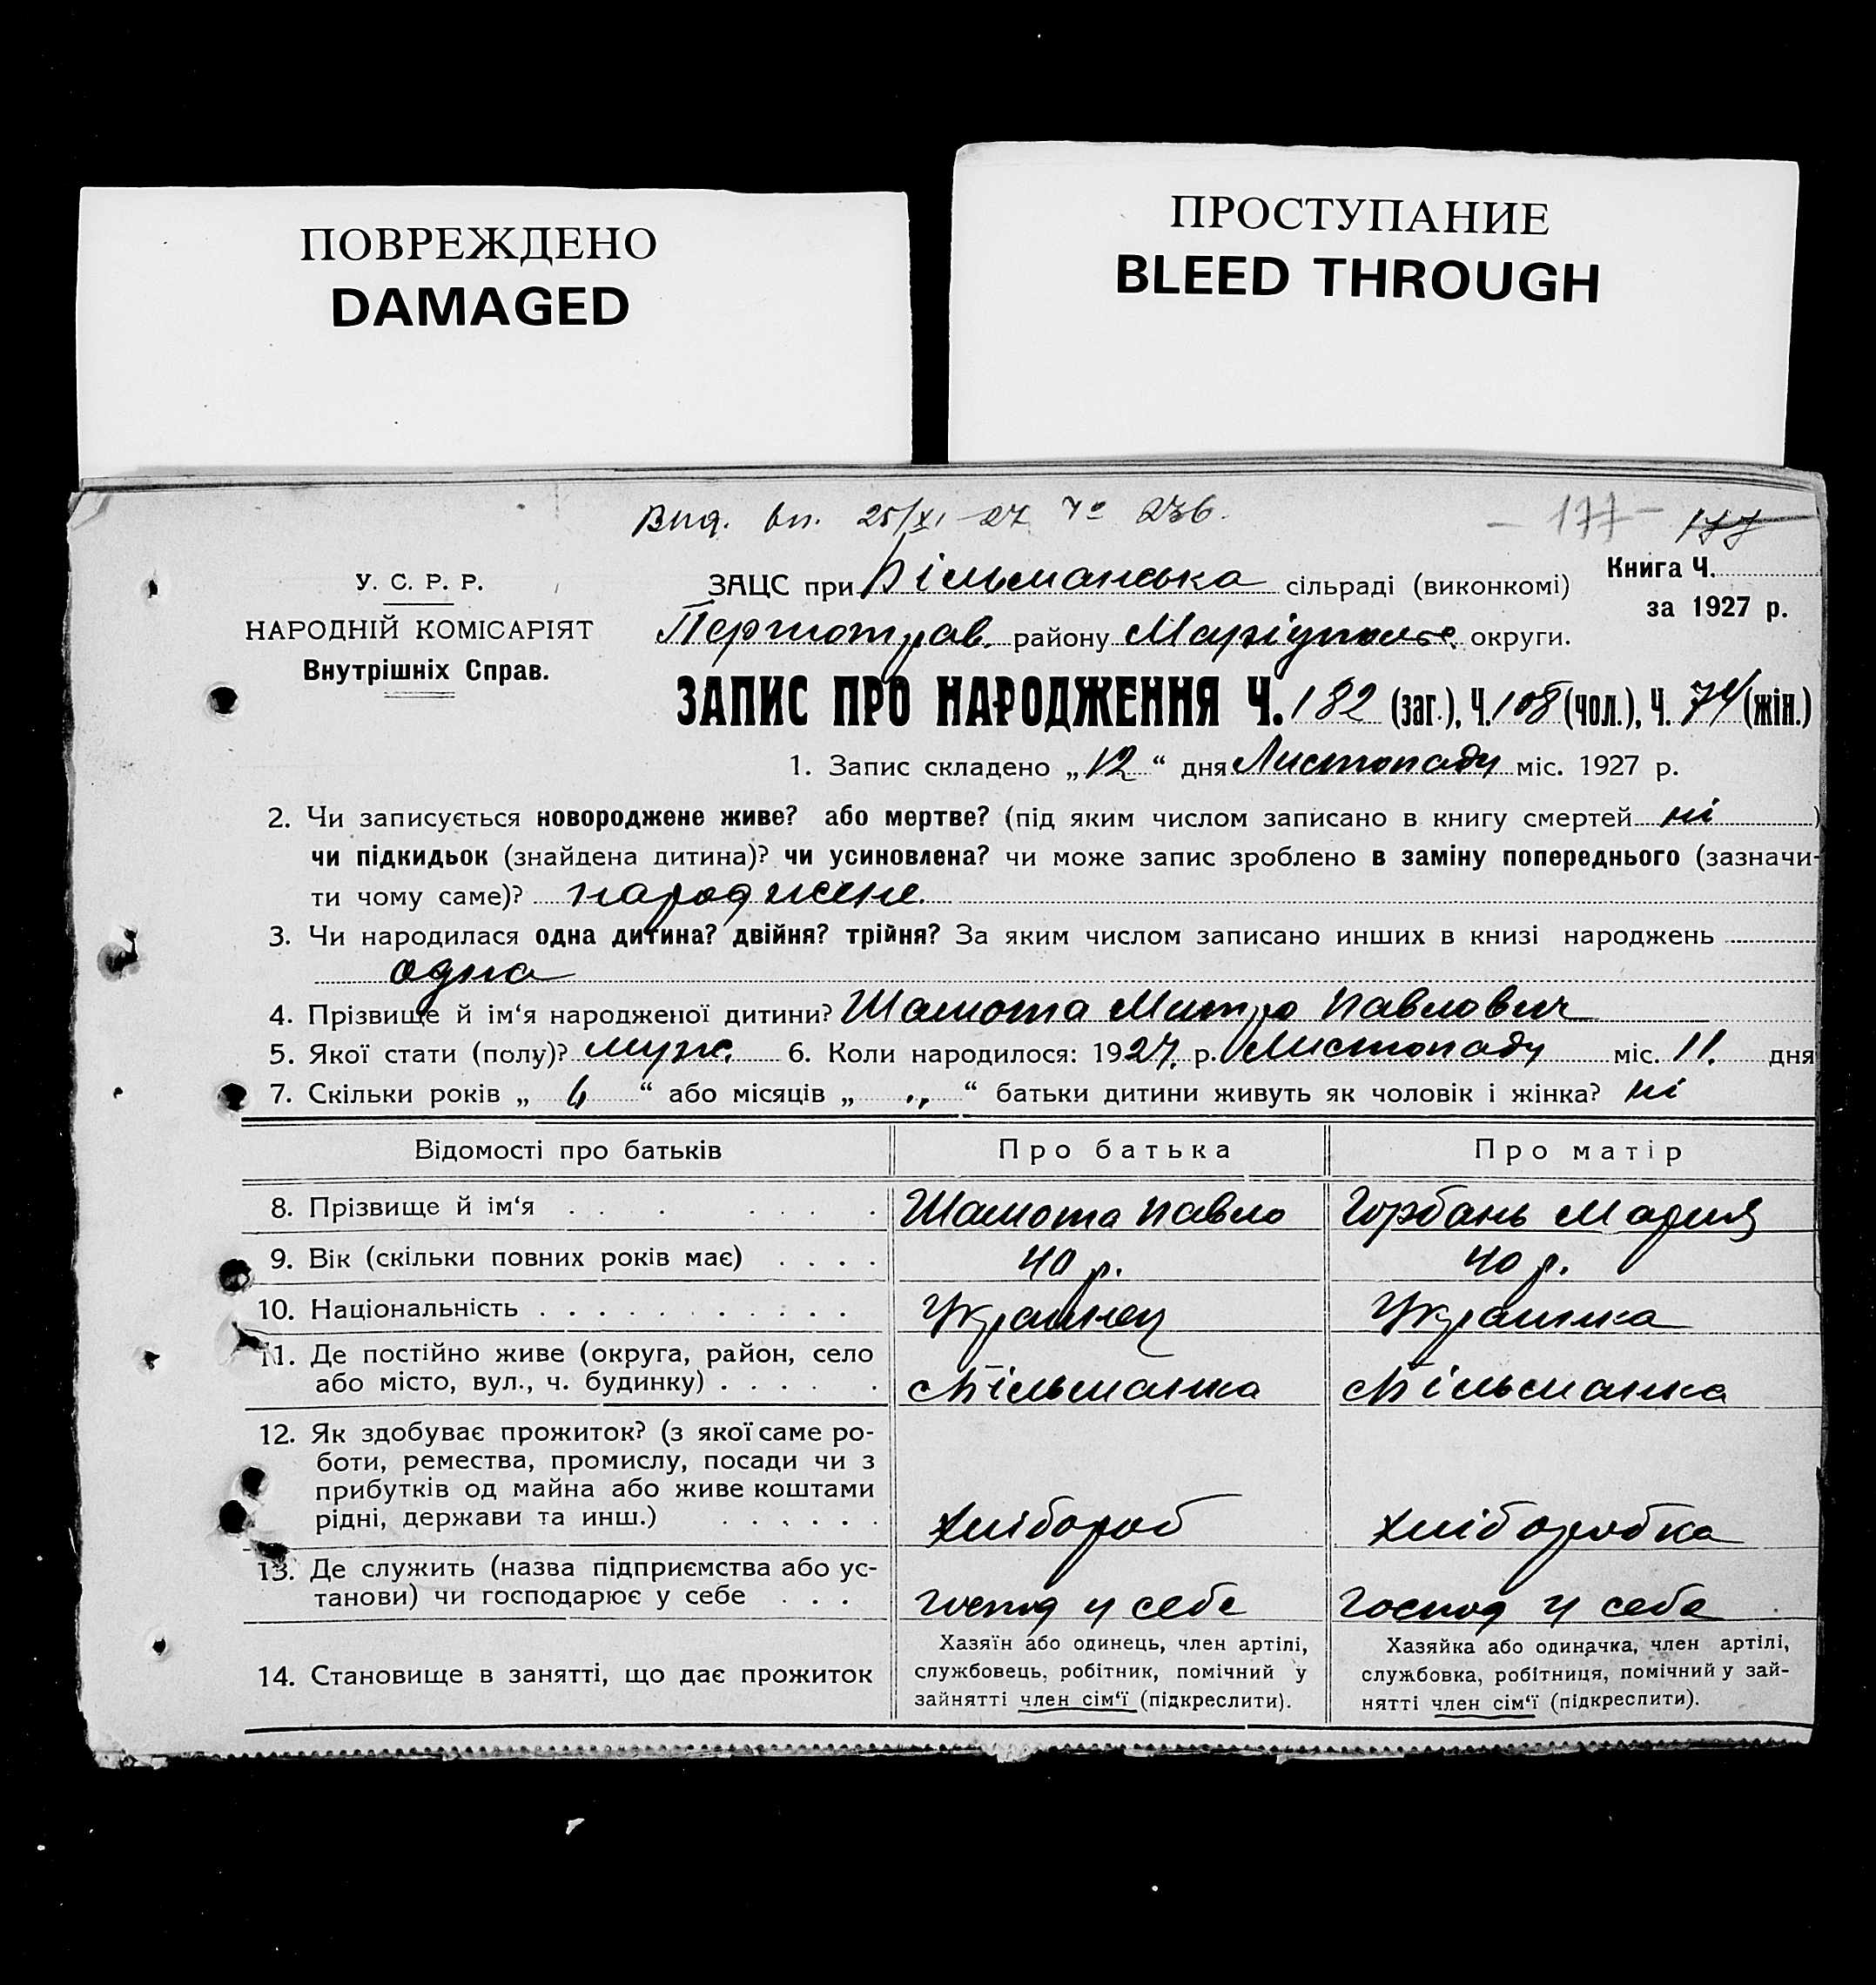 ПОВРЕЖДЕНО
DAMAGED
ПРОСТУПАНИЕ
BLEED THROUGH
Вид. вп. 25/XI-27 № 236.
- 177 - 177
У. С. Р. Р.
НАРОДНІЙ КОМІСАРІЯТ
Внутрішніх Справ.
ЗАЦС при Більманська сільраді (виконкомі)
Книга Ч.
за 1927 р.
Першотрав. району Маріупольс. округи.
ЗАПИС ПРО НАРОДЖЕННЯ Ч. 182 (заг.), Ч. 108 (чол.), Ч. 74 (жін.)
1. Запис складено „12“ дня Листопаду міс. 1927 р.
2. Чи записується новороджене живе? або мертве? (під яким числом записано в книгу смертей ні )
чи підкидьок (знайдена дитина)? чи усиновлена? чи може запис зроблено в заміну попереднього (зазначи-
ти чому саме)? народжене.
3. Чи народилася одна дитина? двійня? трійня? За яким числом записано инших в книзі народжень
одна
4. Прізвище й ім‘я народженої дитини? Шамота Митро Павлович
5. Якої стати (полу)? муж. 6. Коли народилося: 1927 р. Листопаду міс. 11. дня
7. Скільки років „ 6 “ або місяців „ „ “ батьки дитини живуть як чоловік і жінка? ні
Відомості про батьків Про батька Про матір
8. Прізвище й ім‘я Шамота Павло Горбань Мария
9. Вік (скільки повних років має) 40 р. 40 р.
10. Національність Украінец Украінка
11. Де постійно живе (округа, район, село
або місто, вул., ч. будинку) сБільманка сБільманка
12. Як здобуває прожиток? (з якої саме ро-
боти, ремества, промислу, посади чи з
прибутків од майна або живе коштами
рідні, держави та инш.) хлібороб хліборобка
13. Де служить (назва підприємства або ус-
танови) чи господарює у себе Господ у себе Господ у себе
14. Становище в занятті, що дає прожиток
Хазяїн або одинець, член артілі,
службовець, робітник, помічний у
зайнятті член сім‘ї (підкреслити).
Хазяйка або одиначка, член артілі,
службовка, робітниця, помічний у зай-
нятті член сім‘ї (підкреслити).